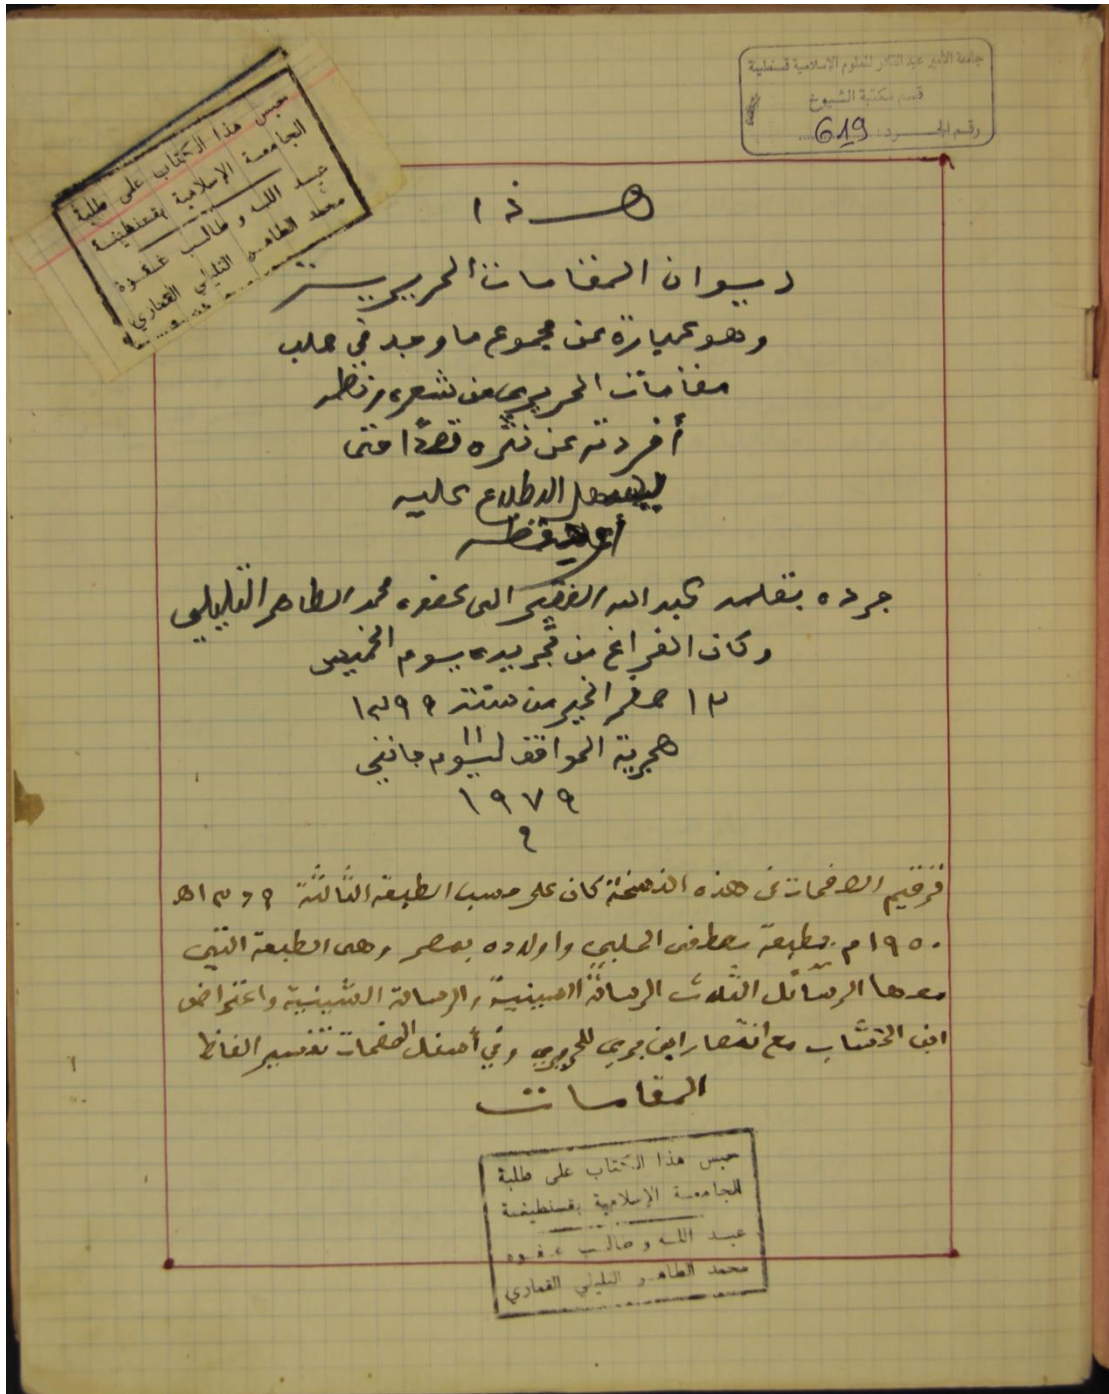 جامعة الأمير عبد القادر للعلوم الإسلامية قسنطينة
قسم مكتبة الشيوخ
رقم الجرد: 619
حبس هذا الكتاب على طلبة
الجامعة الإسلامية بقسنطينة
عبد الله وطالب عفوه
محمد الطاهر التليلي القماري
هذا
ديوان المقامات الحريرية
وهو عبارة عن مجموع ما وجد في صلب
مقامات الحريري من شعره ونظمه
أفردته عن نثره قصدا حتى
يسهل الاطلاع عليه
جرده بقلمه عبد الله الفقير الى عفوه محمد الطاهر التليلي
وكان الفراغ من تجريده يوم الخميس
١٣ صفر الخير من سنة ١٣٩٩
هجرية الموافق ليوم ١١ جانفي
١٩٧٩
م
ترقيم الصفحات في هذه النسخة كان على حسب الطبعة الثالثة ١٣٦٩هـ
١٩٥٠م مطبعة مصطفى الحلبي واولاده بمصر وهى الطبعة التي
معها الرسائل الثلاث الرسالة السينية والرسالة الشينية واعتراض
ابن الخشاب مع انتصار ابن بري للحريري وفي أسفل الصفحات تفسير الفاظ
المقامات
حبس هذا الكتاب على طلبة
الجامعة الإسلامية بقسنطينة
عبد الله وطالب عفوه
محمد الطاهر التليلي القماري